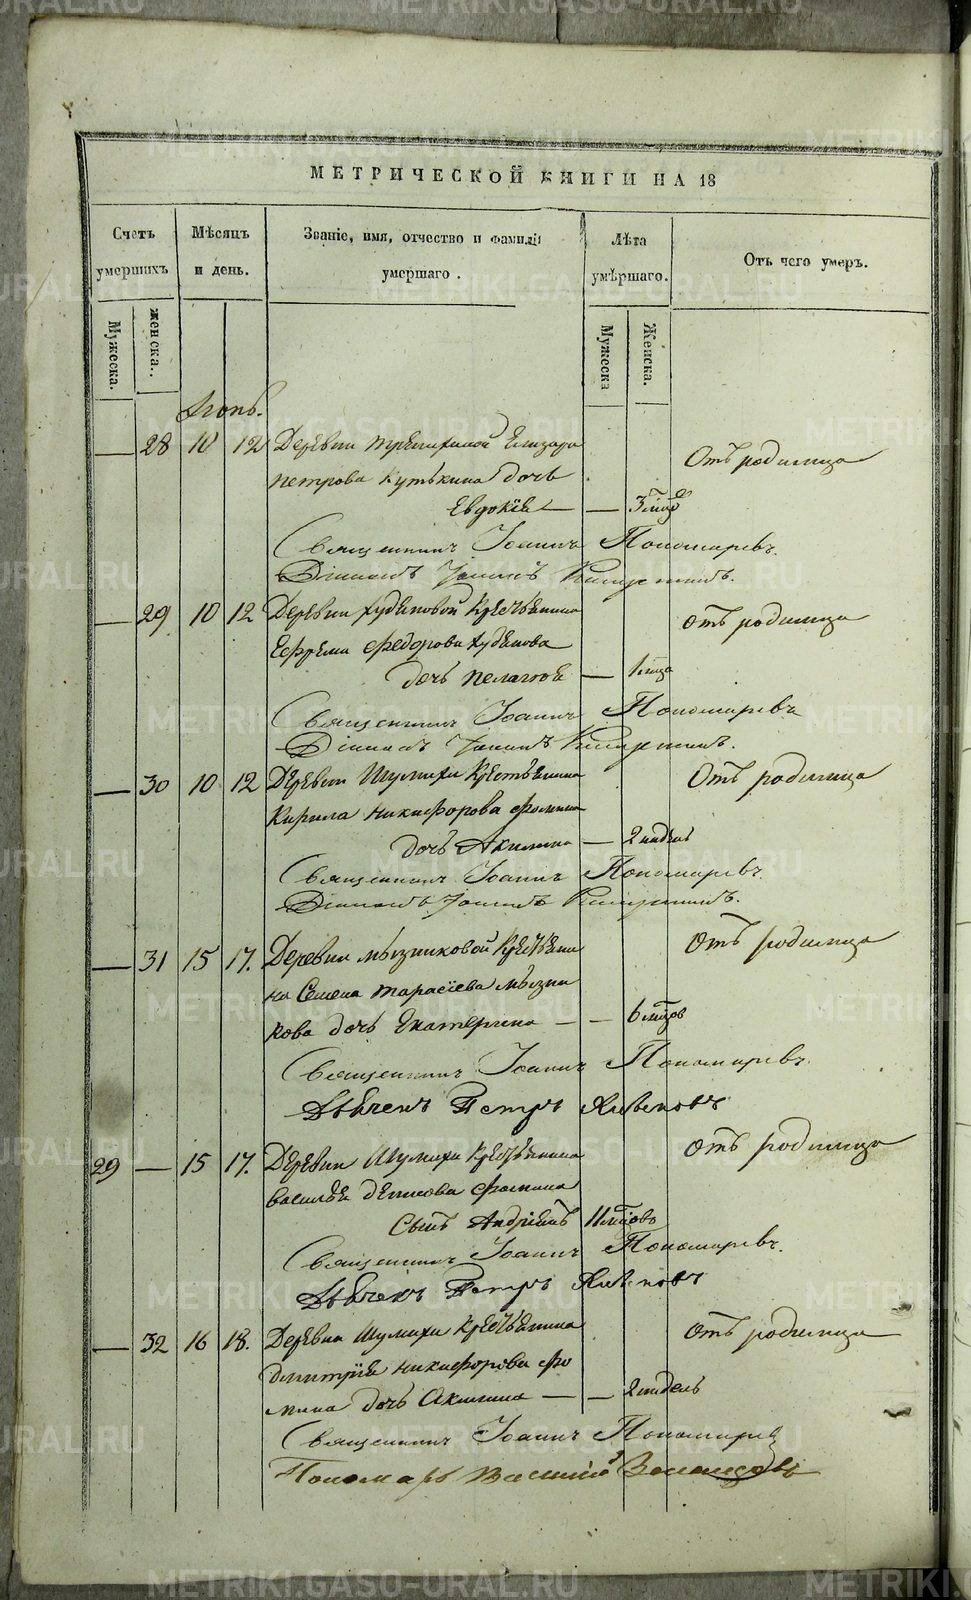 МЕТРИЧЕСКОЙ КНИГИ НА 18
Счетъ умершихъ
Мѣсяцъ и день.
Званіе, имя, отчество и фамилія умершаго.
Лѣта умершаго.
Отъ чего умеръ.
Мужеска.
женска.
Мужеска
Женска.
28 10 12 Деревни Елизара Отъ родимца
петрова Кутькина дочь
Евдокія — — 3 мцо
Священникъ Іоаннъ Пономаревъ.
Діаконъ Іоаннъ
29 10 12 Деревни Худяковой Крестьянина отъ родимца
Ефрема Федорова Худякова
дочь пелагія — 1 мца
Священникъ Іоаннъ Пономаревъ
Діаконъ Іоаннъ
— 30 10 12 Деревни Шумихи Крестьянина Отъ родимца
Кирила Никифорова Фомина
дочь Акилина — 2 недель
Священникъ Іоаннъ Пономаревъ.
Діаконъ Іоаннъ
— 31 15 17. Деревни мызниковой Крестьяни Отъ родимца
на Семена тарасіева мызни
кова дочь Екатерина — — 6 мцовъ
Священникъ Іоаннъ Пономаревъ.
Дьячекъ Петръ Яковлевъ
29 — 15 17. Деревни Шумихи Крестьянина Отъ родимца
василья денисова Фомина
сынъ Андрей 11 мцовъ
Священникъ Іоаннъ Пономаревъ.
Дьячекъ Петръ
— 32 16 18. Деревни Шумихи Крестьянина Отъ родимца
дмитрія никифорова фо
мина дочь Акилина — — 2 недель
Священникъ Іоаннъ Пономаревъ
Пономарь Василій
METRIKI.GASO-URAL.RU